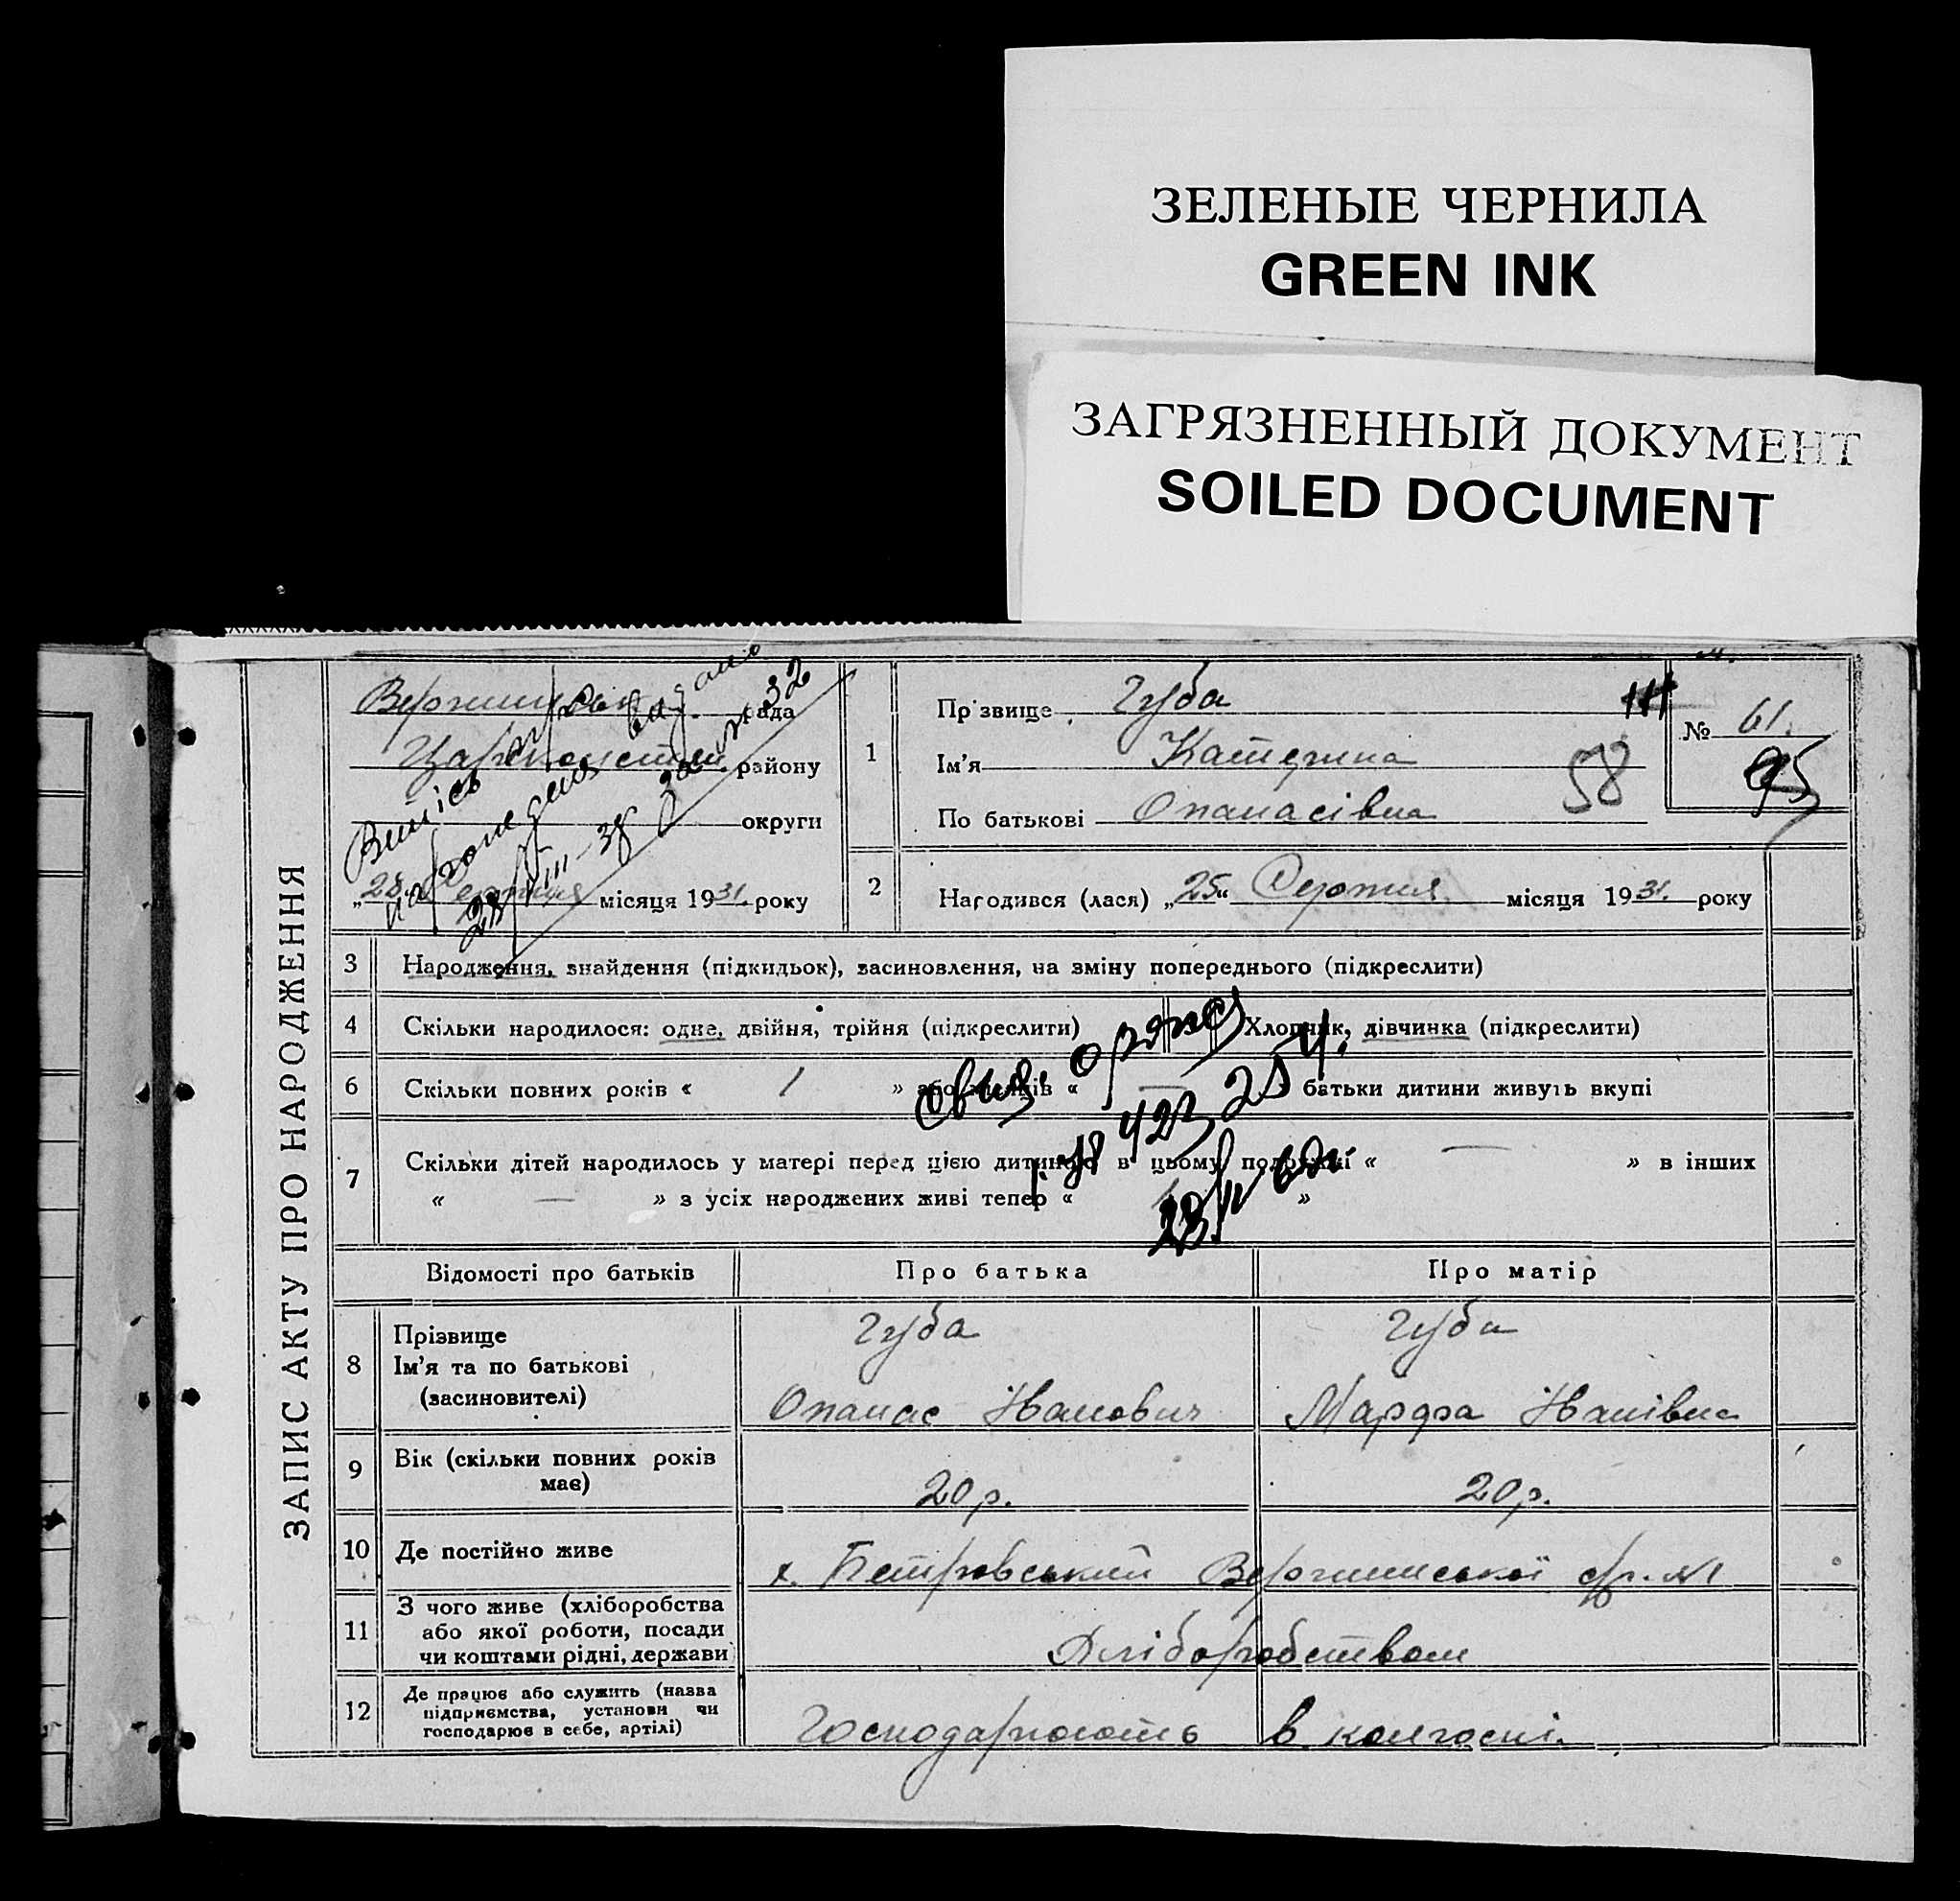 ЗЕЛЕНЫЕ ЧЕРНИЛА
GREEN INK
ЗАГРЯЗНЕННЫЙ ДОКУМЕНТ
SOILED DOCUMENT
ЗАПИС АКТУ ПРО НАРОДЖЕННЯ
рада
району
округи
„28“ Серпня місяця 1931. року
Витяг
видано
28/VIII-38 за № 32
1
Прізвище Губа
Ім'я Катерина
По батькові Опанасівна
58
№ 61.
95
2
Народився (лася) „25“ Серпня місяця 1931. року
3 Народження, знайдення (підкидьок), засиновлення, на зміну попереднього (підкреслити)
4 Скільки народилося: одне, двійня, трійня (підкреслити) Хлопчик, дівчинка (підкреслити)
6 Скільки повних років « 1 » або місяців « — » батьки дитини живуть вкупі
7 Скільки дітей народилось у матері перед цією дитиною в цьому подружжі « — » в інших
« — » з усіх народжених живі тепер « »
Відомості про батьків Про батька Про матір
8 Прізвище
Ім'я та по батькові
(засиновителі)
Губа Губа
Опанас Іванович Марфа Іванівна
9 Вік (скільки повних років
має)
20 р. 20 р.
10 Де постійно живе х. Петровський с/р. №1
11 З чого живе (хліборобства
або якої роботи, посади
чи коштами рідні, держави
Хліборобством
12 Де працює або служить (назва
підприємства, установи чи
господарює в себе, артілі)
Господарюють в колгоспі.